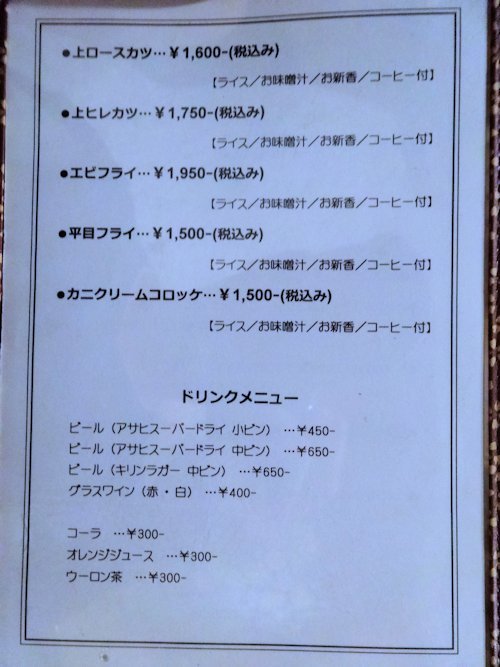 ●上ロースカツ…￥1,600-(税込み)
【ライス／お味噌汁／お新香／コーヒー付】
●上ヒレカツ…￥1,750-(税込み)
【ライス／お味噌汁／お新香／コーヒー付】
●エビフライ…￥1,950-(税込み)
【ライス／お味噌汁／お新香／コーヒー付】
●平目フライ…￥1,500-(税込み)
【ライス／お味噌汁／お新香／コーヒー付】
●カニクリームコロッケ…￥1,500-(税込み)
【ライス／お味噌汁／お新香／コーヒー付】
ドリンクメニュー
ビール（アサヒスーパードライ 小ビン） …￥450-
ビール（アサヒスーパードライ 中ビン） …￥650-
ビール（キリンラガー 中ビン） …￥650-
グラスワイン（赤・白） …￥400-
コーラ …￥300-
オレンジジュース …￥300-
ウーロン茶 …￥300-